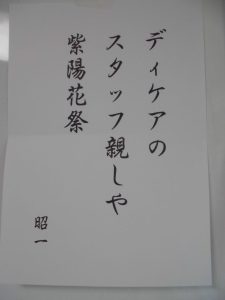 ディケアの
スタッフ親しや
紫陽花祭
昭一